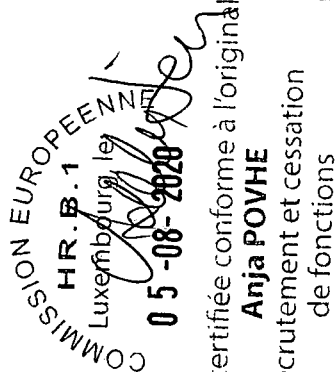 COMMISSION EUROPEENNE
HR.B.1
Luxembourg, le
05-08-2020
ertifiée conforme à l'original
Anja POVHE
crutement et cessation
de fonctions